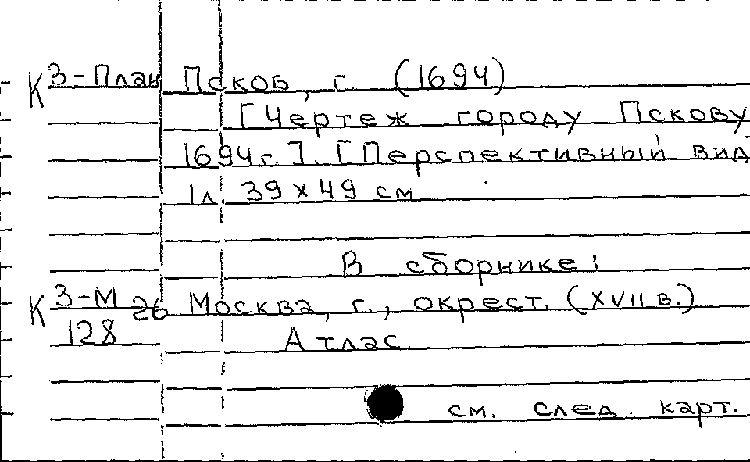 К 3-План Псков, г. (1694)
[Чертеж городу Пскову
1694 г.]. [Перспективный вид
1 л. 39 х 49 см
В сборнике:
К 3-М 26 Москва, г., окрест. (XVII в.)
128 Атлас
см. след. карт.